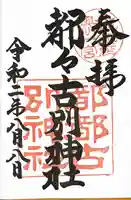 奉拝
都々古別神社
都都古
別神社
令和二年八月八日